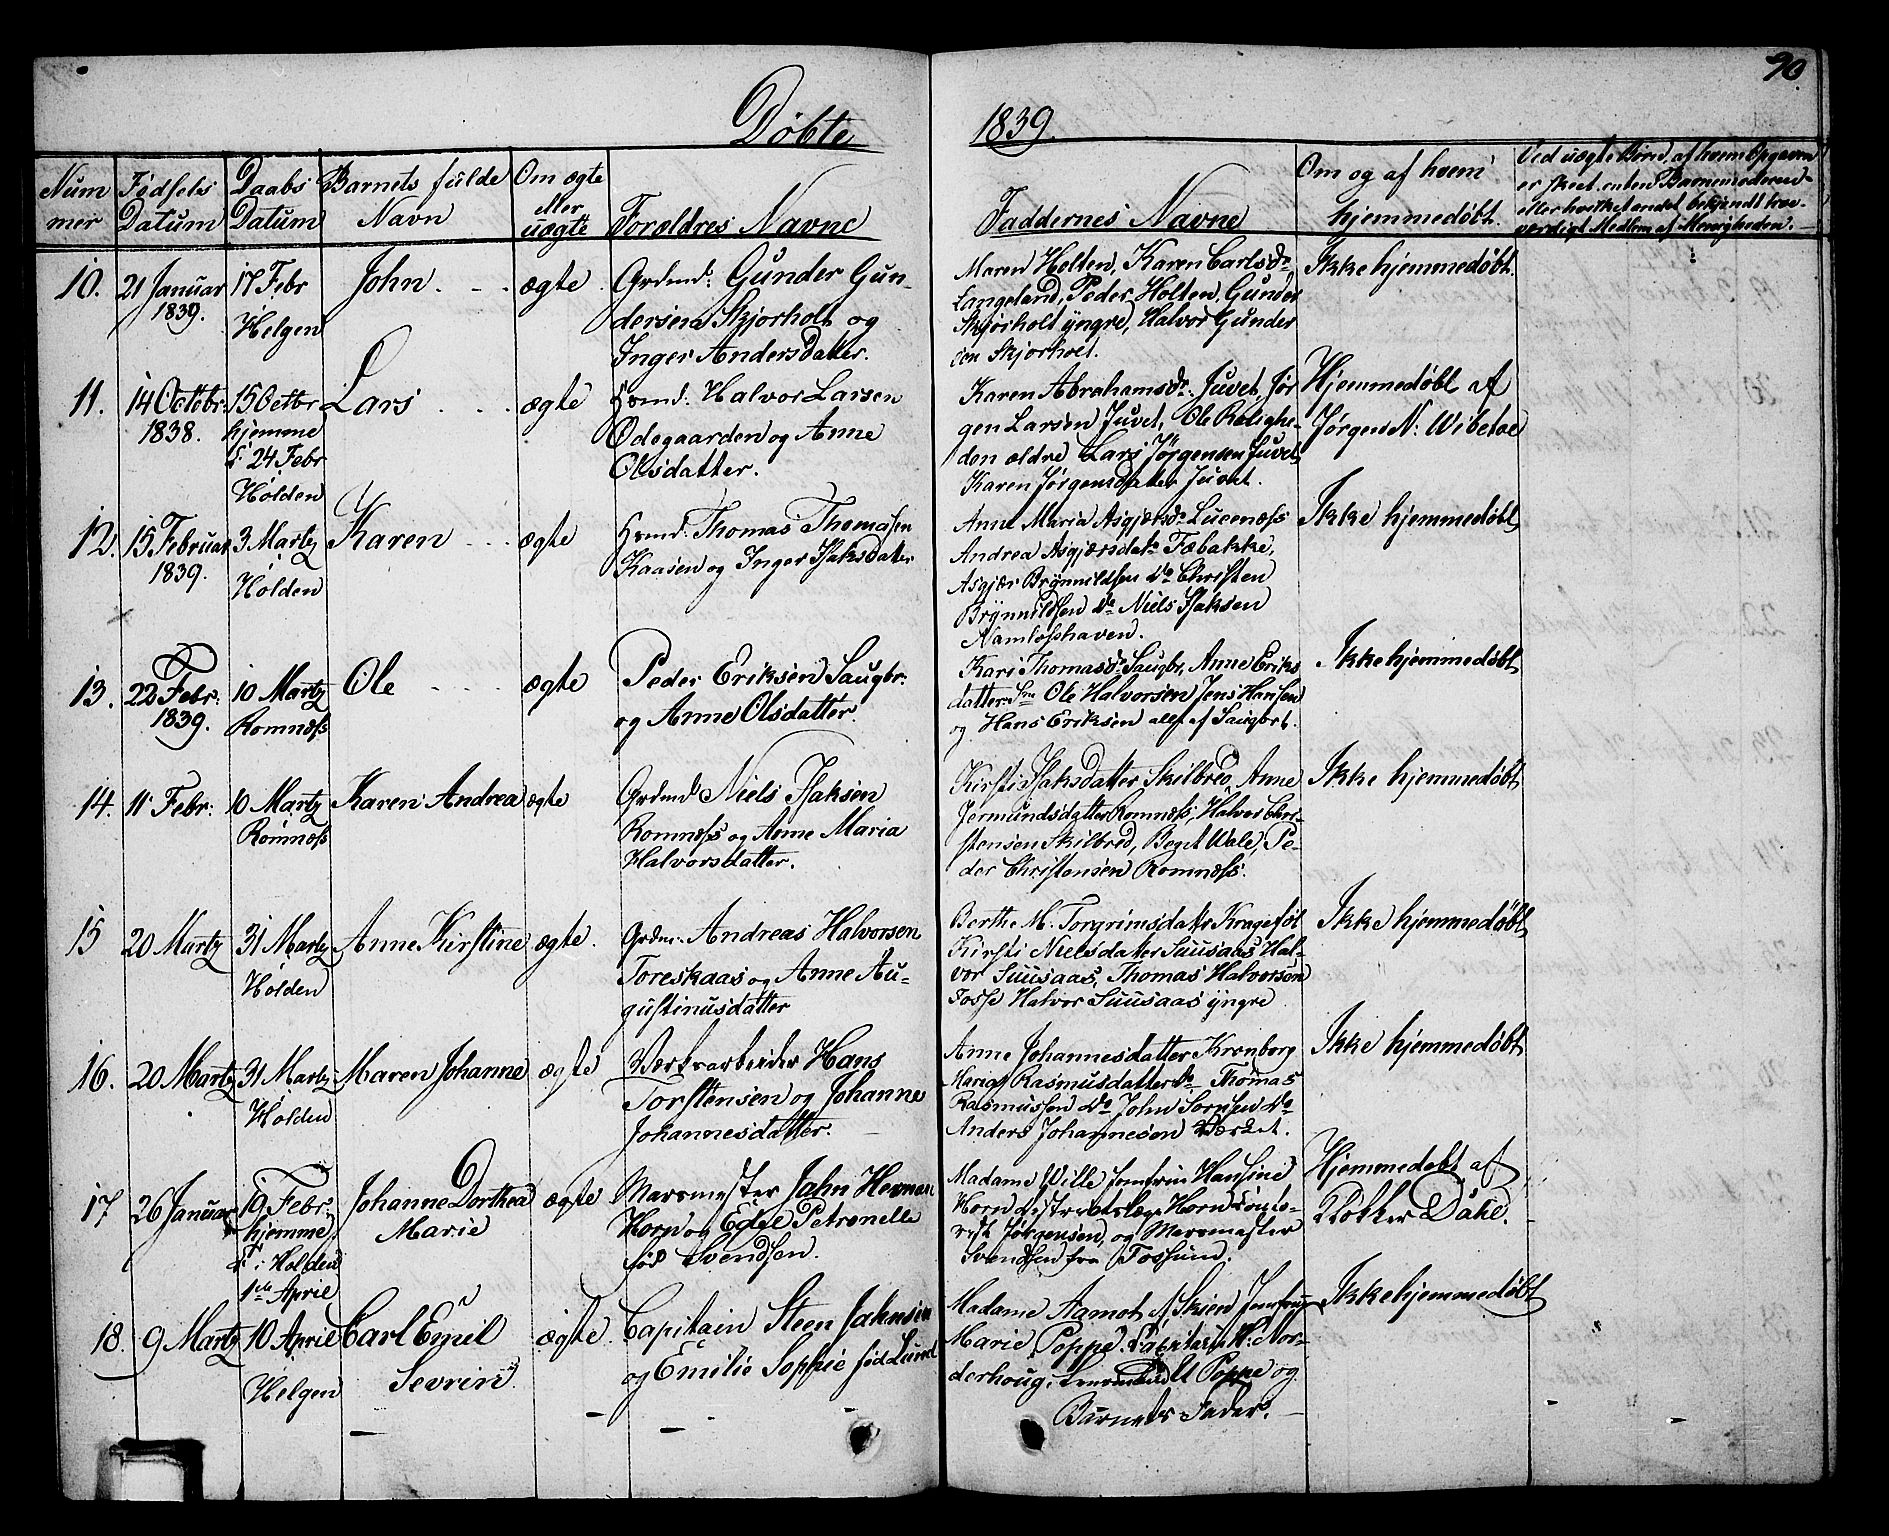 90.
Døbte
1839.
Num
mer
Fødsels
Datum
Daabs
Datum
Barnets fulde
Navn
Om ægte
eller
uægte
Forældres Navne
Faddernes Navne
Om og af hvem
hjemmedøbt.
Ved uægte Børn, af hvem Opgaven
er skeet, enten Barnemoderen
eller hvilket andet bekjendt tro-
værdigt Medlem af Menigheden.
10.
21 Januar
1839.
17 Febr
Helgen
John.
ægte.
Grdmd: Gunder Gun-
dersen Skjorholt og
Inger Andersdatter.
Maren Holten, Karen Carlsdr
Langeland, Peder Holten, Gunder
Skjorholt yngre, Halvor Gunder
sen Skjorholt.
Ikke hjemmedøbt.
11.
14 Octobr:
1838.
15 Octbr
hjemme
d: 24 Febr
Holden
Lars
ægte
Hsmd: Halvor Larsen
Ødegaarden og Anne
Olsdatter.
Karen Abrahamsdr. Juvet, Jør
gen Larsen Juvet, Ole Rolighe-
den ældre Lars Jørgensen Juvet,
Karen Jørgensdatter Juvet.
Hjemmedøbt af
Jørgen N: Wibetoe
12.
15 Februar
1839.
3 Martz
Holden
Karen
ægte
Hsmd: Thomas Thomassen
Kaasen og Inger Isaksdatter
Anne Maria Asgjærsdr Lucenæss
Andrea Asgjærsdatr Fæbakke,
Asgjær Brynnildsen do Christen
Brynnildsen do Niels Isaksen
Namlosshaven.
Ikke hjemmedøbt
13.
22 Febr:
1839.
10 Martz
Romnæss
Ole
ægte
Peder Eriksen Saugbr:
og Anne Olsdatter.
Kari Thomasdr Saugbr, Anne Eriks
datter Ole Halvorsen Jens Hansen
og Hans Eriksen alle af Saugbrt.
Ikke hjemmedøbt
14.
11 Febr:
10 Martz
Romnæss
Karen Andrea
ægte
Grdmd Niels Isaksen
Romnæss og Anne Maria
Halvorsdatter.
Kirsti Isaksdatter Skilbred, Anne
Jermundsdatter Romnæss, Halvor Chri-
stensen Skilbred, Pe-
der Christensen Romnæss.
Ikke hjemmedøbt
15
20 Martz
31 Martz
Holden
Anne Kirstine
ægte.
Grdm: Andreas Halvorsen
Toreskaas og Anne Au-
gustinusdatter
Berthe M. Torgrimsdatr Krageføt
Kirsti Nielsdatter Suusaas Hal-
vor Suusaas, Thomas Halvorsen
Fosse Halvor Suusaas yngre
Ikke hjemmedøbt
16.
20 Martz
31 Martz
Holden
Maren Johanne
ægte
Verksarbeider Hans
Torstensen og Johanne
Johannesdatter.
Anne Johannesdatter Kronborg
Rasmusdatter do Thomas
Rasmussen do John Sornsen do
Anders Johannesen Værket.
Ikke hjemmedøbt
17
26 Januar
19 Febr:
hjemme,
d: i Holden
1ste April
Johanne Dorthea
Marie
ægte
Marsmester Jahn Herman
Horn og Petronelle
fød Svendsen.
Madame Wille Jomfru Hansine
Horn districtslæge Horn
Jørgensen, og Marsmester
Svendsen fra Fossum.
Hjemmedøbt af
Klokker Dahl.
18.
9 Martz
10 April
Helgen
Carl Emil
Sevrin
ægte
Capitain Steen Jahnsen
og Emilie Sophie født Lund
Madame Aamot af Skien Jomfru
Marie Poppe. Capitain H: Nor-
derhoug, Poppe og
Barnets Fader.
Ikke hjemmedøbt